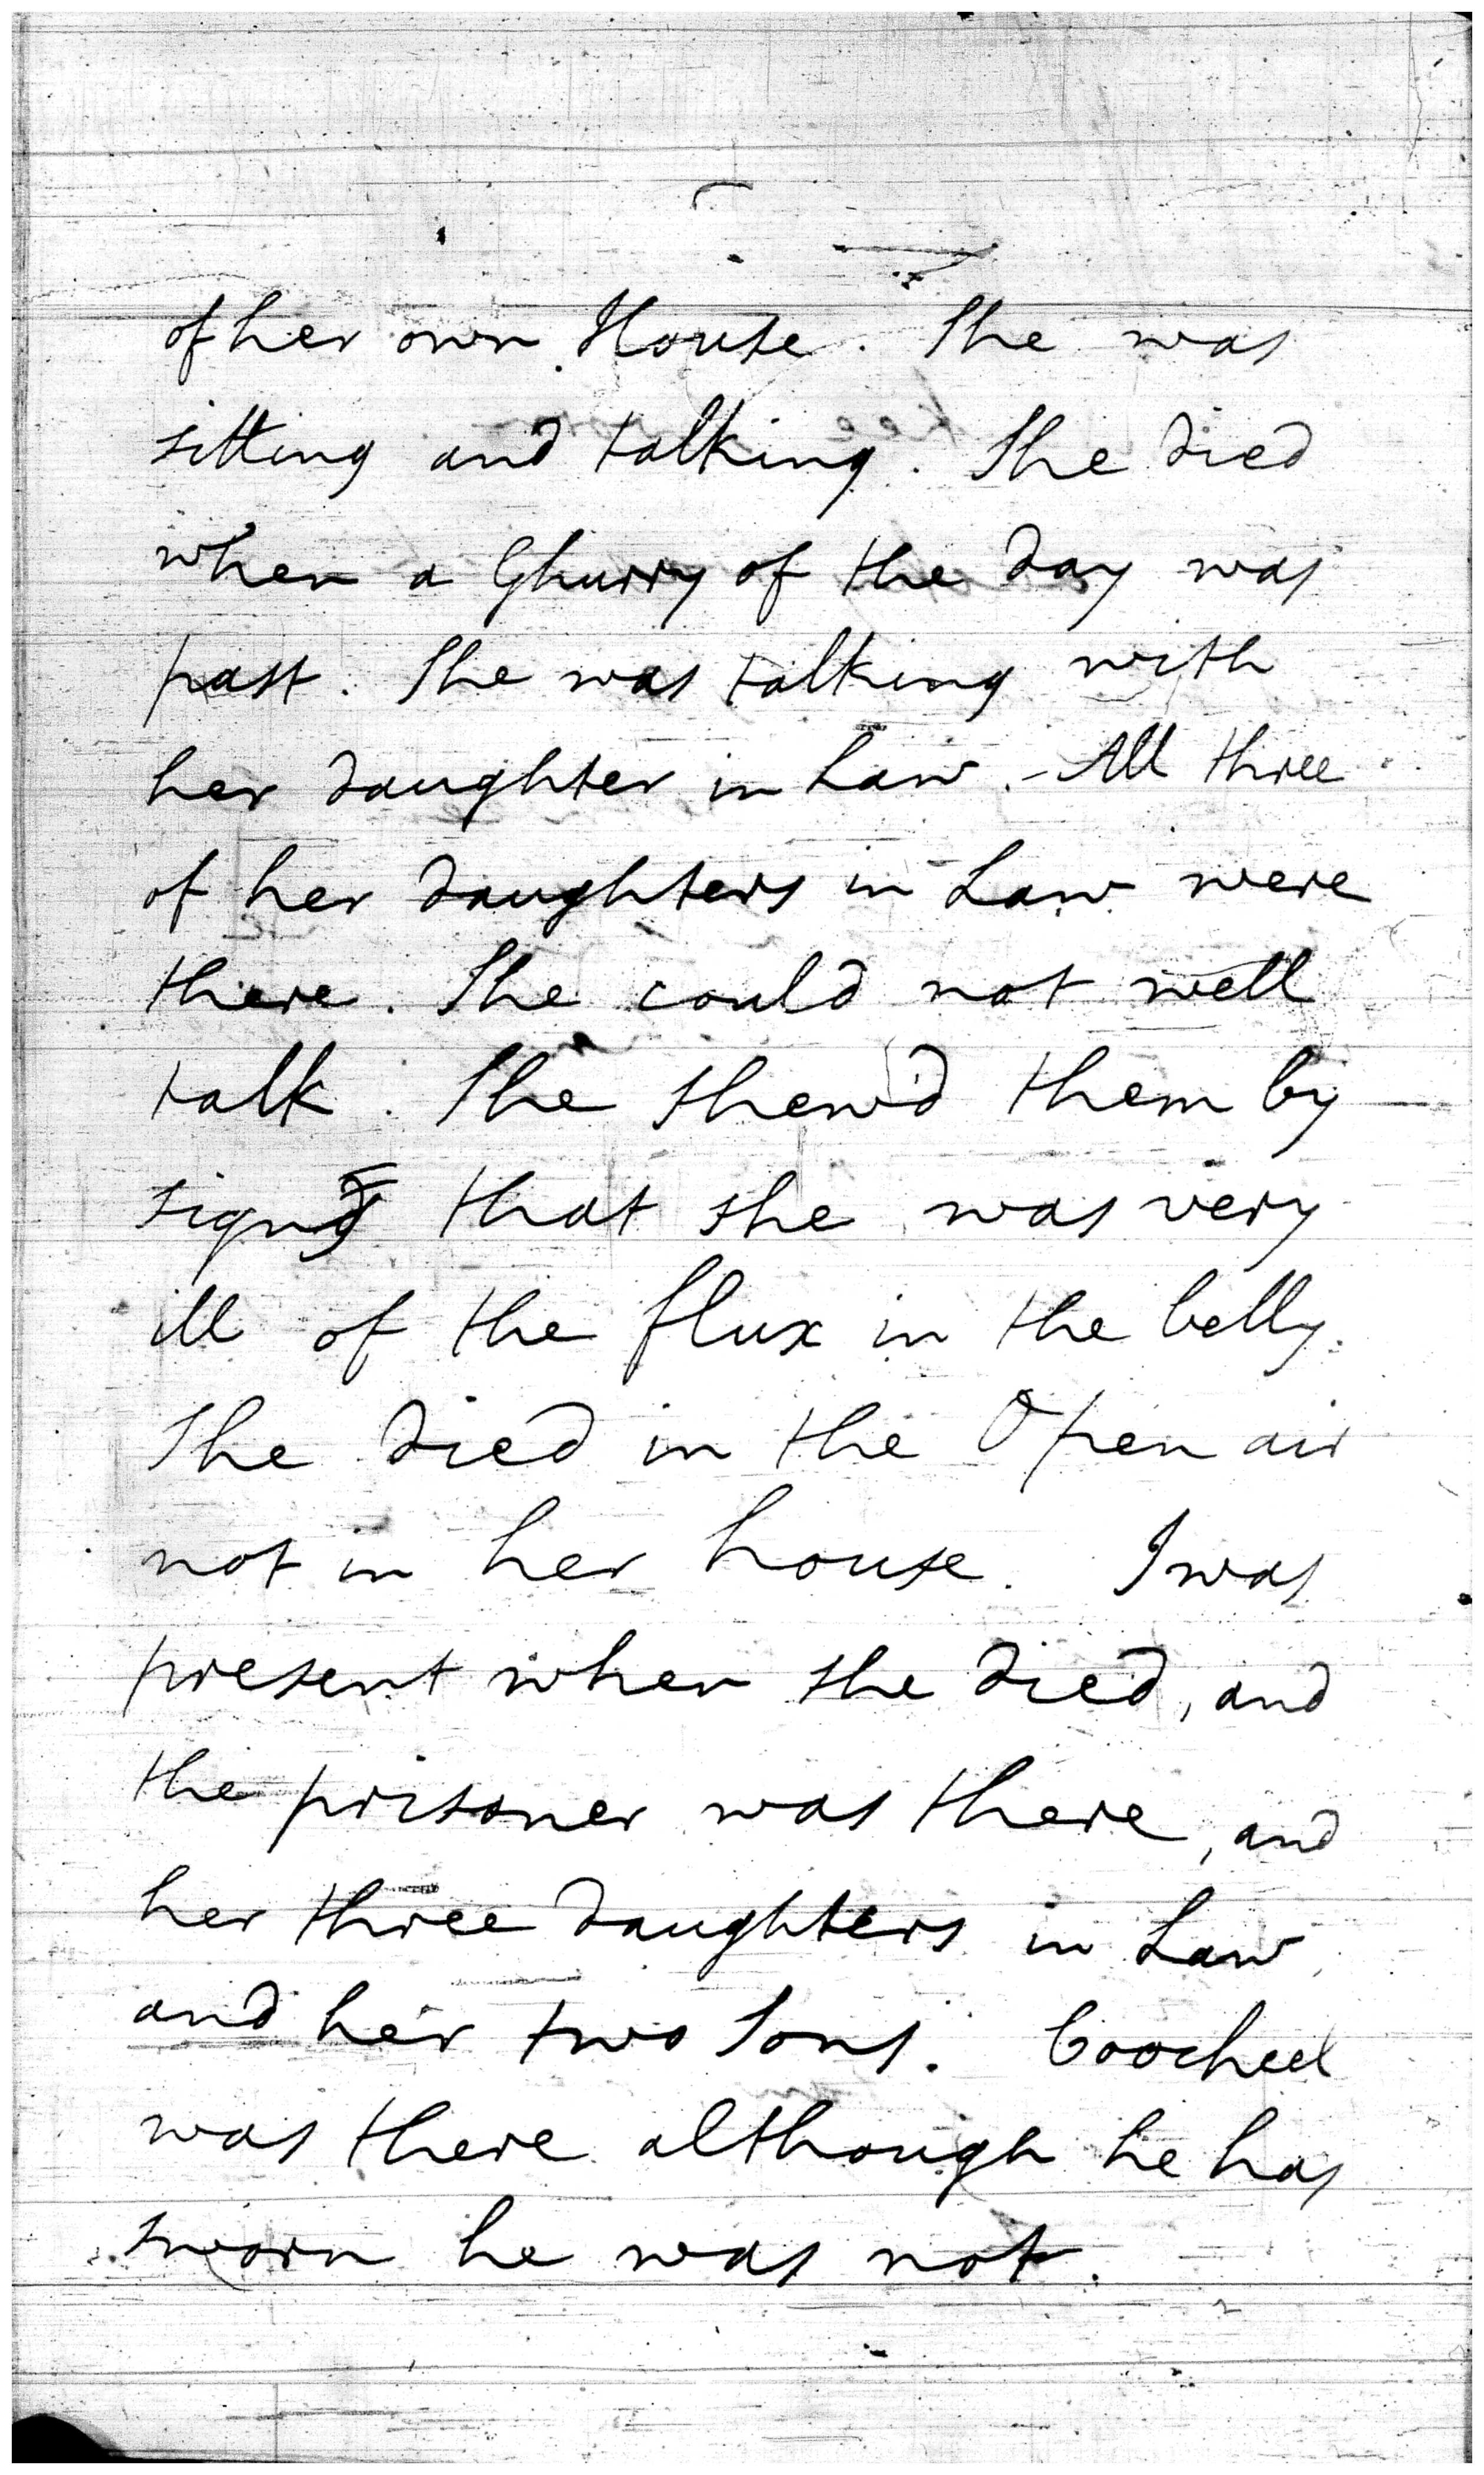 of her own House. She was
sitting and talking. She died
when a Ghurry of the day was
past. She was talking with
her daughter in Law. - All three
of her daughters in Law were
there. She could not well
talk. She shew'd them by
signs that she was very
ill of the flux in the belly.
She died in the Open air
not in her house. I was
present when she died, and
the prisoner was there, and
her three daughters in Law
and her two Sons. Coocheel
was there although he has
sworn he was not.